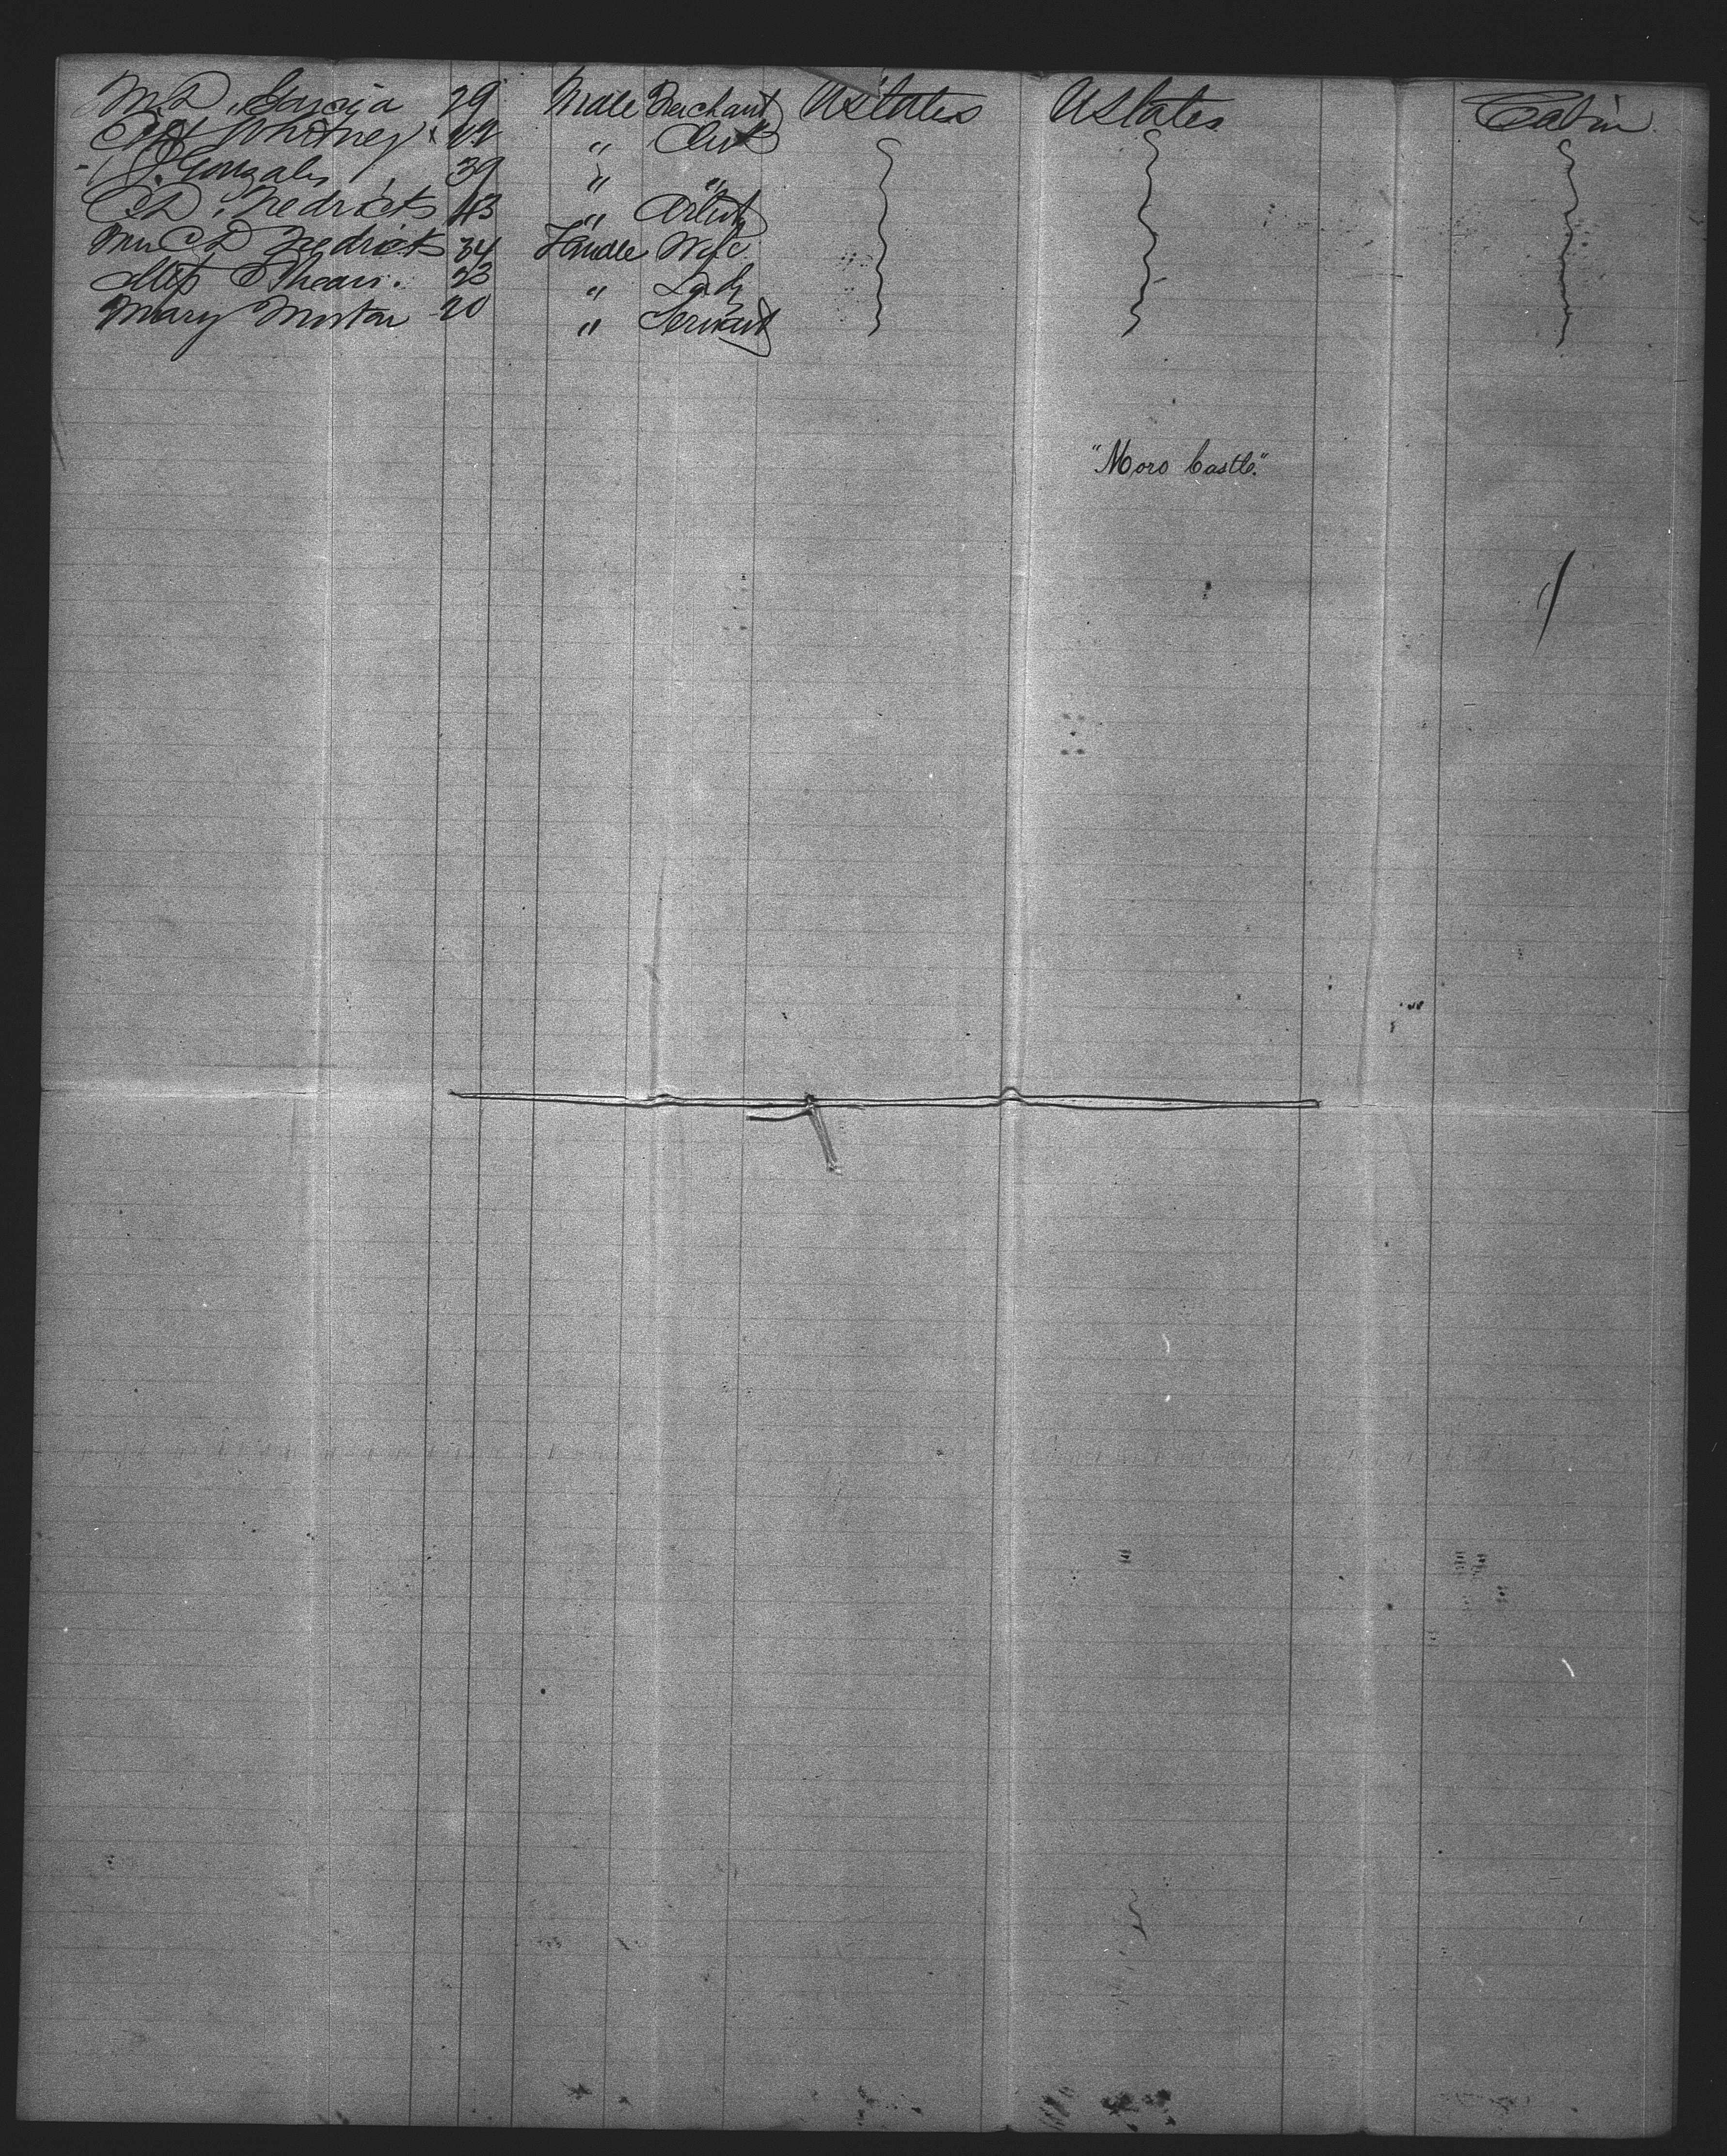 M. D. Garcia 29 Male Merchant UStates UStates Cabin
Whitney " Clerk
J. Gonzales 39 " "
C D. Fredricks 43 " Artist
Mrs C D Fredricks 34 Female Wife
Miss 23 " Lady
Mary 20 " Servant
"Moro Castle"